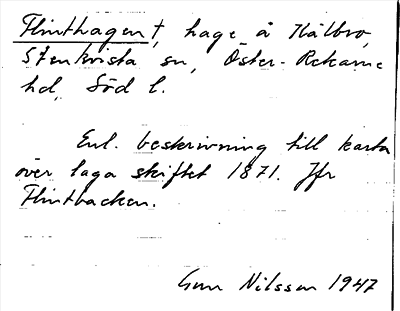 Flinthagen †, hage å Kälbro,
Stenkvista sn, Öster-Rekarne
hd, Söd l.
Enl. beskrivning till karta
över laga skiftet 1871. Jfr
Flintbacken.
Gun Nilsson 1947